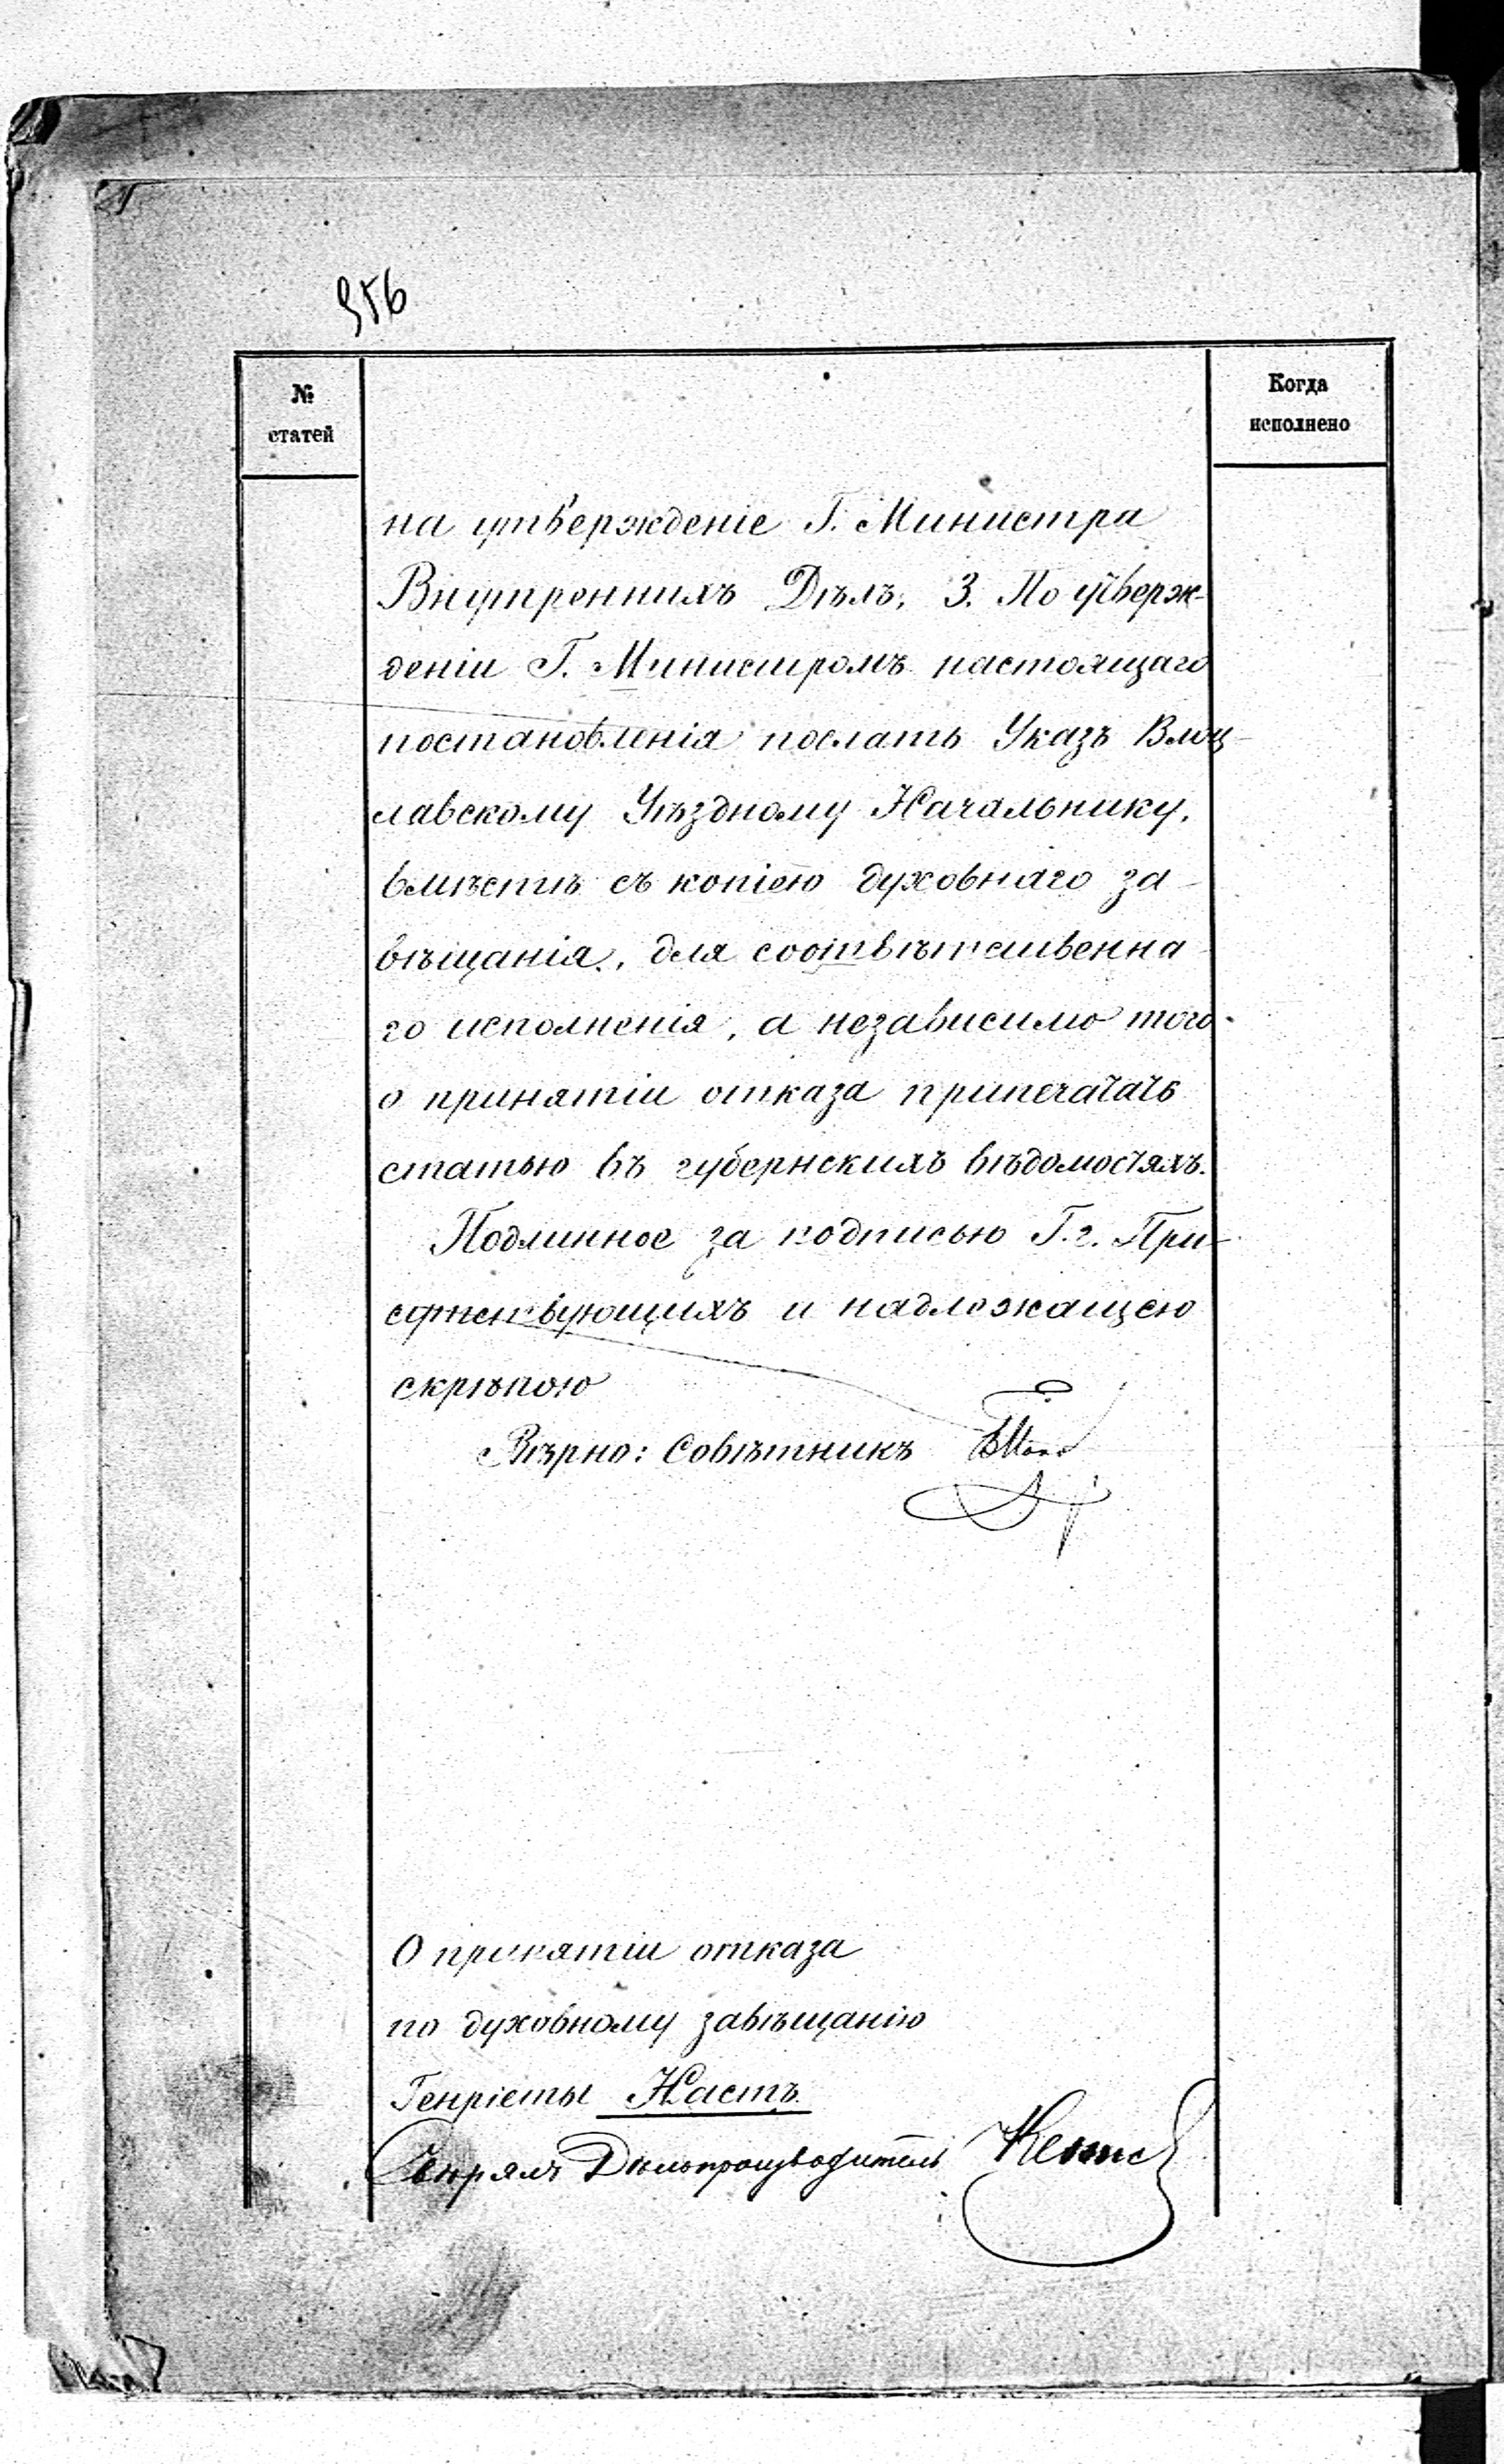 956
№
статей
Когда
исполнено
на утвержденіе Г. Министра
Внутреннихъ Дѣлъ; 3. По утверж-
деніи Г. Министромъ настоящаго
постановленія послать Указъ Влоц-
лавскому Уѣздному Начальнику,
вмѣстѣ съ копіею духовнаго за-
вѣщанія, для соотвѣтственна
го исполненія, а независимо того
о принятіи отказа припечатать
статью въ губернскихъ вѣдомостяхъ.
Подлинное за подписью Г.г. При-
сутствующихъ и надлежащею
скрѣпою
Вѣрно: Совѣтникъ
О принятіи отказа
по духовному завѣщанію
Генріеты Настъ
Дѣлопроизводитель